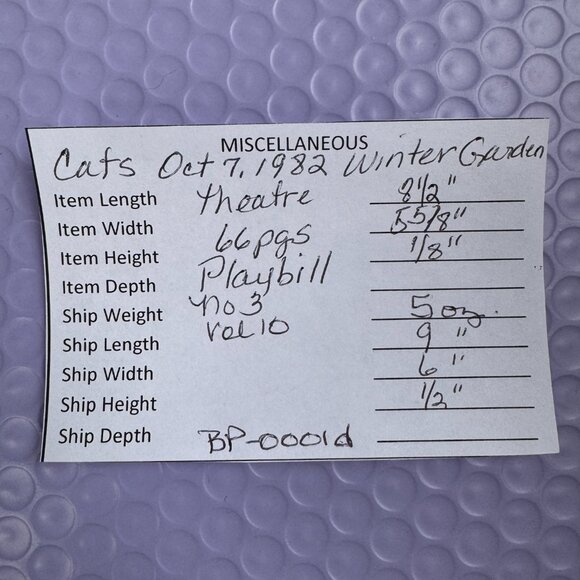 MISCELLANEOUS
Cats Oct 7, 1982 Winter Garden
Item Length theatre 8 1/2 "
Item Width 5 5/8 "
Item Height 66 pgs 1/8 "
Item Depth Playbill
Ship Weight no 3 5 oz.
Ship Length vol 10 9 "
Ship Width 6 "
Ship Height 1/2 "
Ship Depth BP-0001d